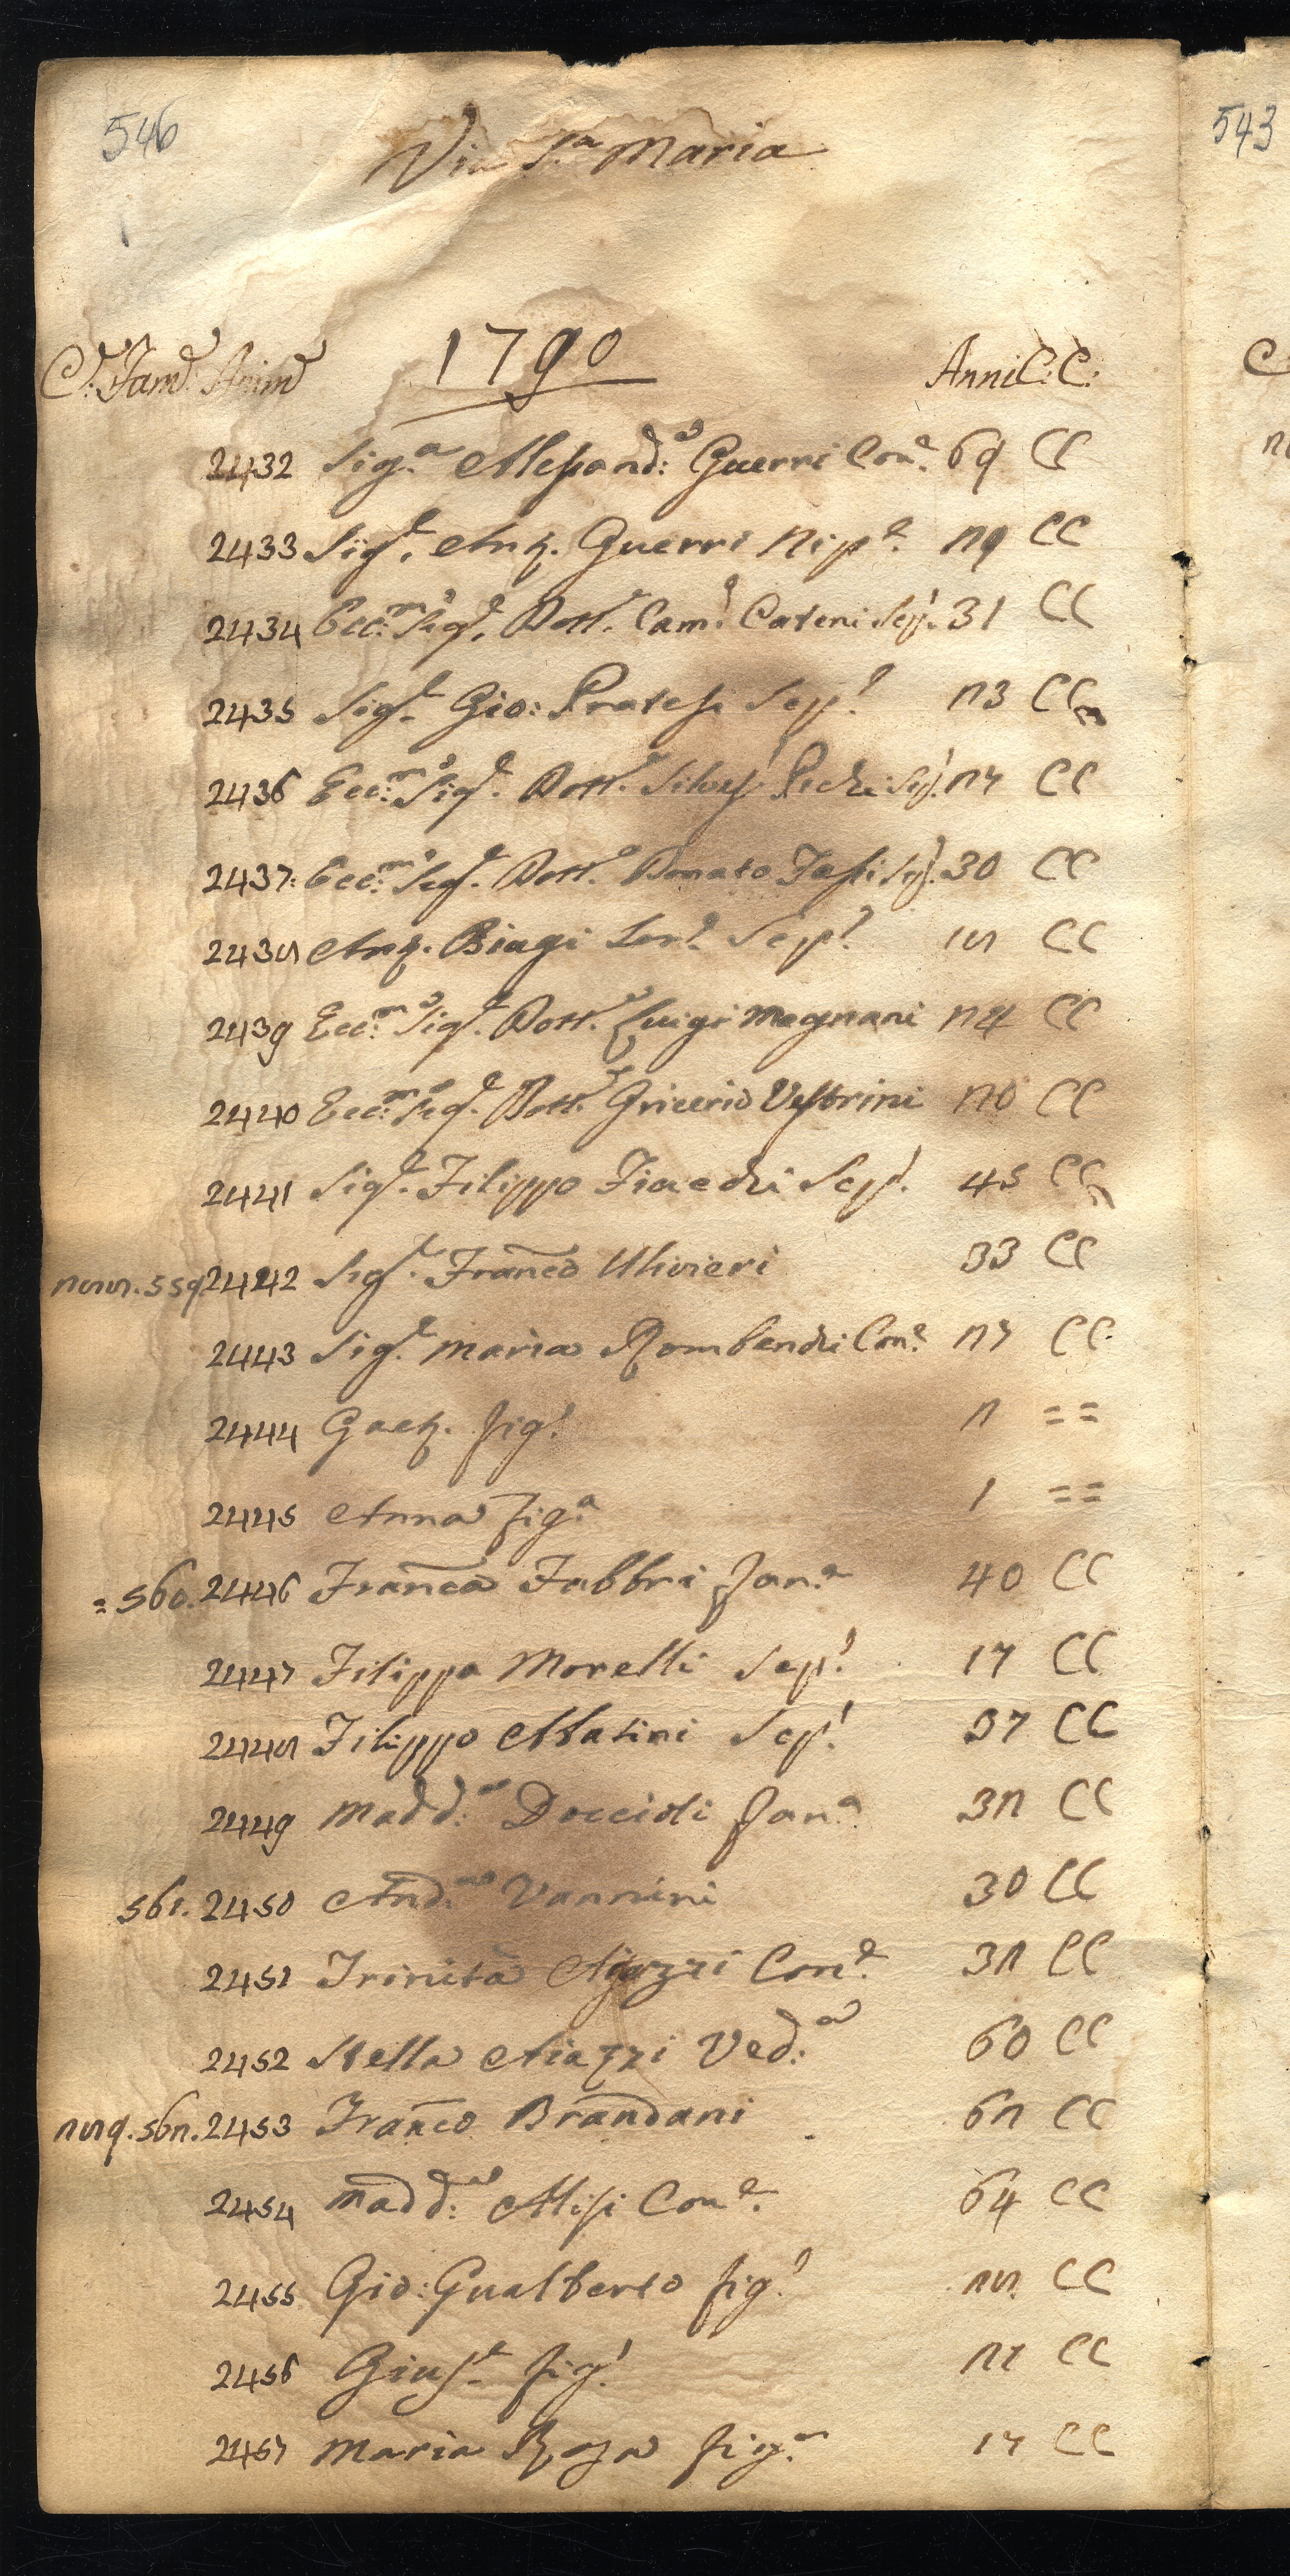 546
543
Via S.ta Maria
1790
C.e Fam.e Anime Anni C: C:
2432 Sig.a Alessand:a Guerri Con.e 69 CC
2433 Sig.e Ang. Guerri Nip.e 29 CC
2434 Ecc:mo Sig.e Dott.e Cam.o Cateni Sep.! 31 CC
2435 Sig.e Gio: Pratesi Sep.! 23 CC
2436 Ecc:mo Sig.e Dott.e 27 CC
2437: Ecc:mo Sig.e Dott.e Donato 30 CC
2438 Ang. Biagi Ser.! Sep.! 18 CC
2439 Ecc:mo Sig.e Dott.e Luigi Magnani 24 CC
2440 Ecc:mo Sig.e Dott.e Gricerio Vestrini 20 CC
2441 Sig.e Filippo Fiaechi Sep.! 45 CC
288. 559 2442 Sig.e Franco Ulivieri 33 CC
2443 Sig.e Maria Rombenchi Con.e 27 CC
2444 Gaet. fig.! 2 ==
2445 Anna fig.a 1 ==
= 560. 2446 Franca Fabbri Fan.a 40 CC
2447 Filippa Morelli Sep.! 17 CC
2448 Filippo Matini Sep.! 37 CC
2449 Madd:a Doccioli Fan.a 32 CC
561. 2450 And:a Vannini 30 CC
2451 Trinita Ajazzi Con.e 32 CC
2452 Stella Aiazzi Ved:a 60 CC
289. 562. 2453 Franco Brandani 62 CC
2454 Madd:a Con.e 64 CC
2455 Gio: Gualberto fig.! 28 CC
2456 Gius.e fig.! 21 CC
2457 Maria Rosa fig.a 17 CC